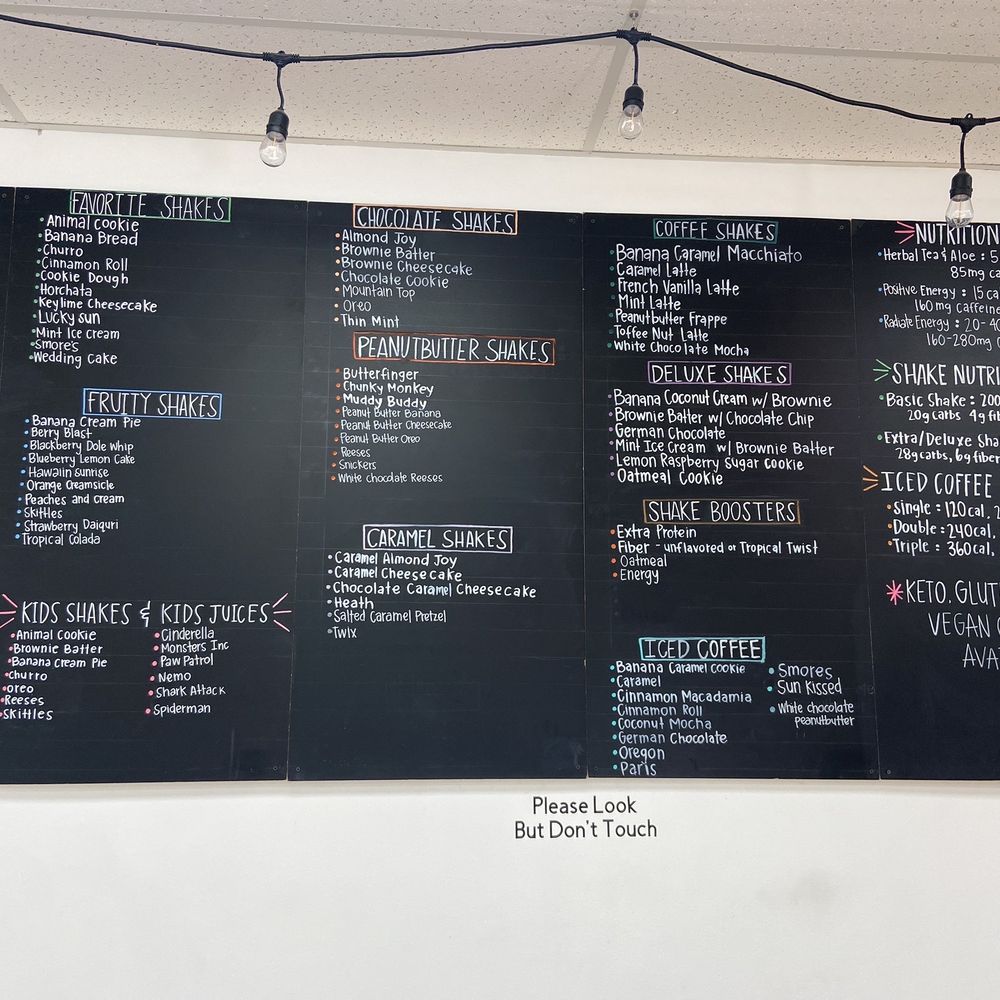 FAVORITE SHAKES
Animal Cookie
Banana Bread
Churro
Cinnamon Roll
Cookie Dough
Horchata
Keylime Cheesecake
Lucky sun
Mint Ice cream
Smore's
Wedding Cake
FRUITY SHAKES
Banana Cream Pie
Berry Blast
Blackberry Dole Whip
Blueberry Lemon Cake
Hawaiin Sunrise
Orange Creamsicle
Peaches and cream
Skittles
Strawberry Daiquri
Tropical Colada
KIDS SHAKES & KIDS JUICES
Animal Cookie
Brownie Batter
Banana Cream Pie
Churro
Oreo
Reeses
Skittles
Cinderella
Monsters Inc
Paw Patrol
Nemo
Shark Attack
Spiderman
CHOCOLATE SHAKES
Almond Joy
Brownie Batter
Brownie Cheesecake
Chocolate Cookie
Mountain Top
Oreo
Thin Mint
PEANUTBUTTER SHAKES
Butterfinger
Chunky Monkey
Muddy Buddy
Peanut Butter Banana
Peanut Butter Cheesecake
Peanut Butter Oreo
Reeses
Snickers
White chocolate Reeses
CARAMEL SHAKES
Caramel Almond Joy
Caramel Cheesecake
Chocolate Caramel Cheesecake
Heath
Salted Caramel Pretzel
Twix
COFFEE SHAKES
Banana Caramel Macchiato
Caramel Latte
French Vanilla Latte
Mint Latte
Peanutbutter Frappe
Toffee Nut Latte
White Chocolate Mocha
DELUXE SHAKES
Banana Coconut Cream w/ Brownie
Brownie Batter w/ Chocolate Chip
German Chocolate
Mint Ice Cream w/ Brownie Batter
Lemon Raspberry Sugar Cookie
Oatmeal Cookie
SHAKE BOOSTERS
Extra Protein
Fiber - unflavored or Tropical Twist
Oatmeal
Energy
ICED COFFEE
Banana Caramel Cookie
Caramel
Cinnamon Macadamia
Cinnamon Roll
Coconut Mocha
German Chocolate
Oregon
Paris
Smores
Sun Kissed
White chocolate
peanutbutter
NUTRITION
Herbal Tea & Aloe : 5
85mg ca
Positive Energy : 15 ca
160 mg caffeine
Radiate Energy : 20-4
160-280mg
SHAKE NUTRI
Basic Shake : 200
20g carbs 4g fi
Extra/Deluxe Sha
28g carbs, 6g fiber
ICED COFFEE
Single : 120 cal, 2
Double : 240cal,
Triple : 360cal,
KETO. GLUT
VEGAN
AVA
Please Look
But Don't Touch